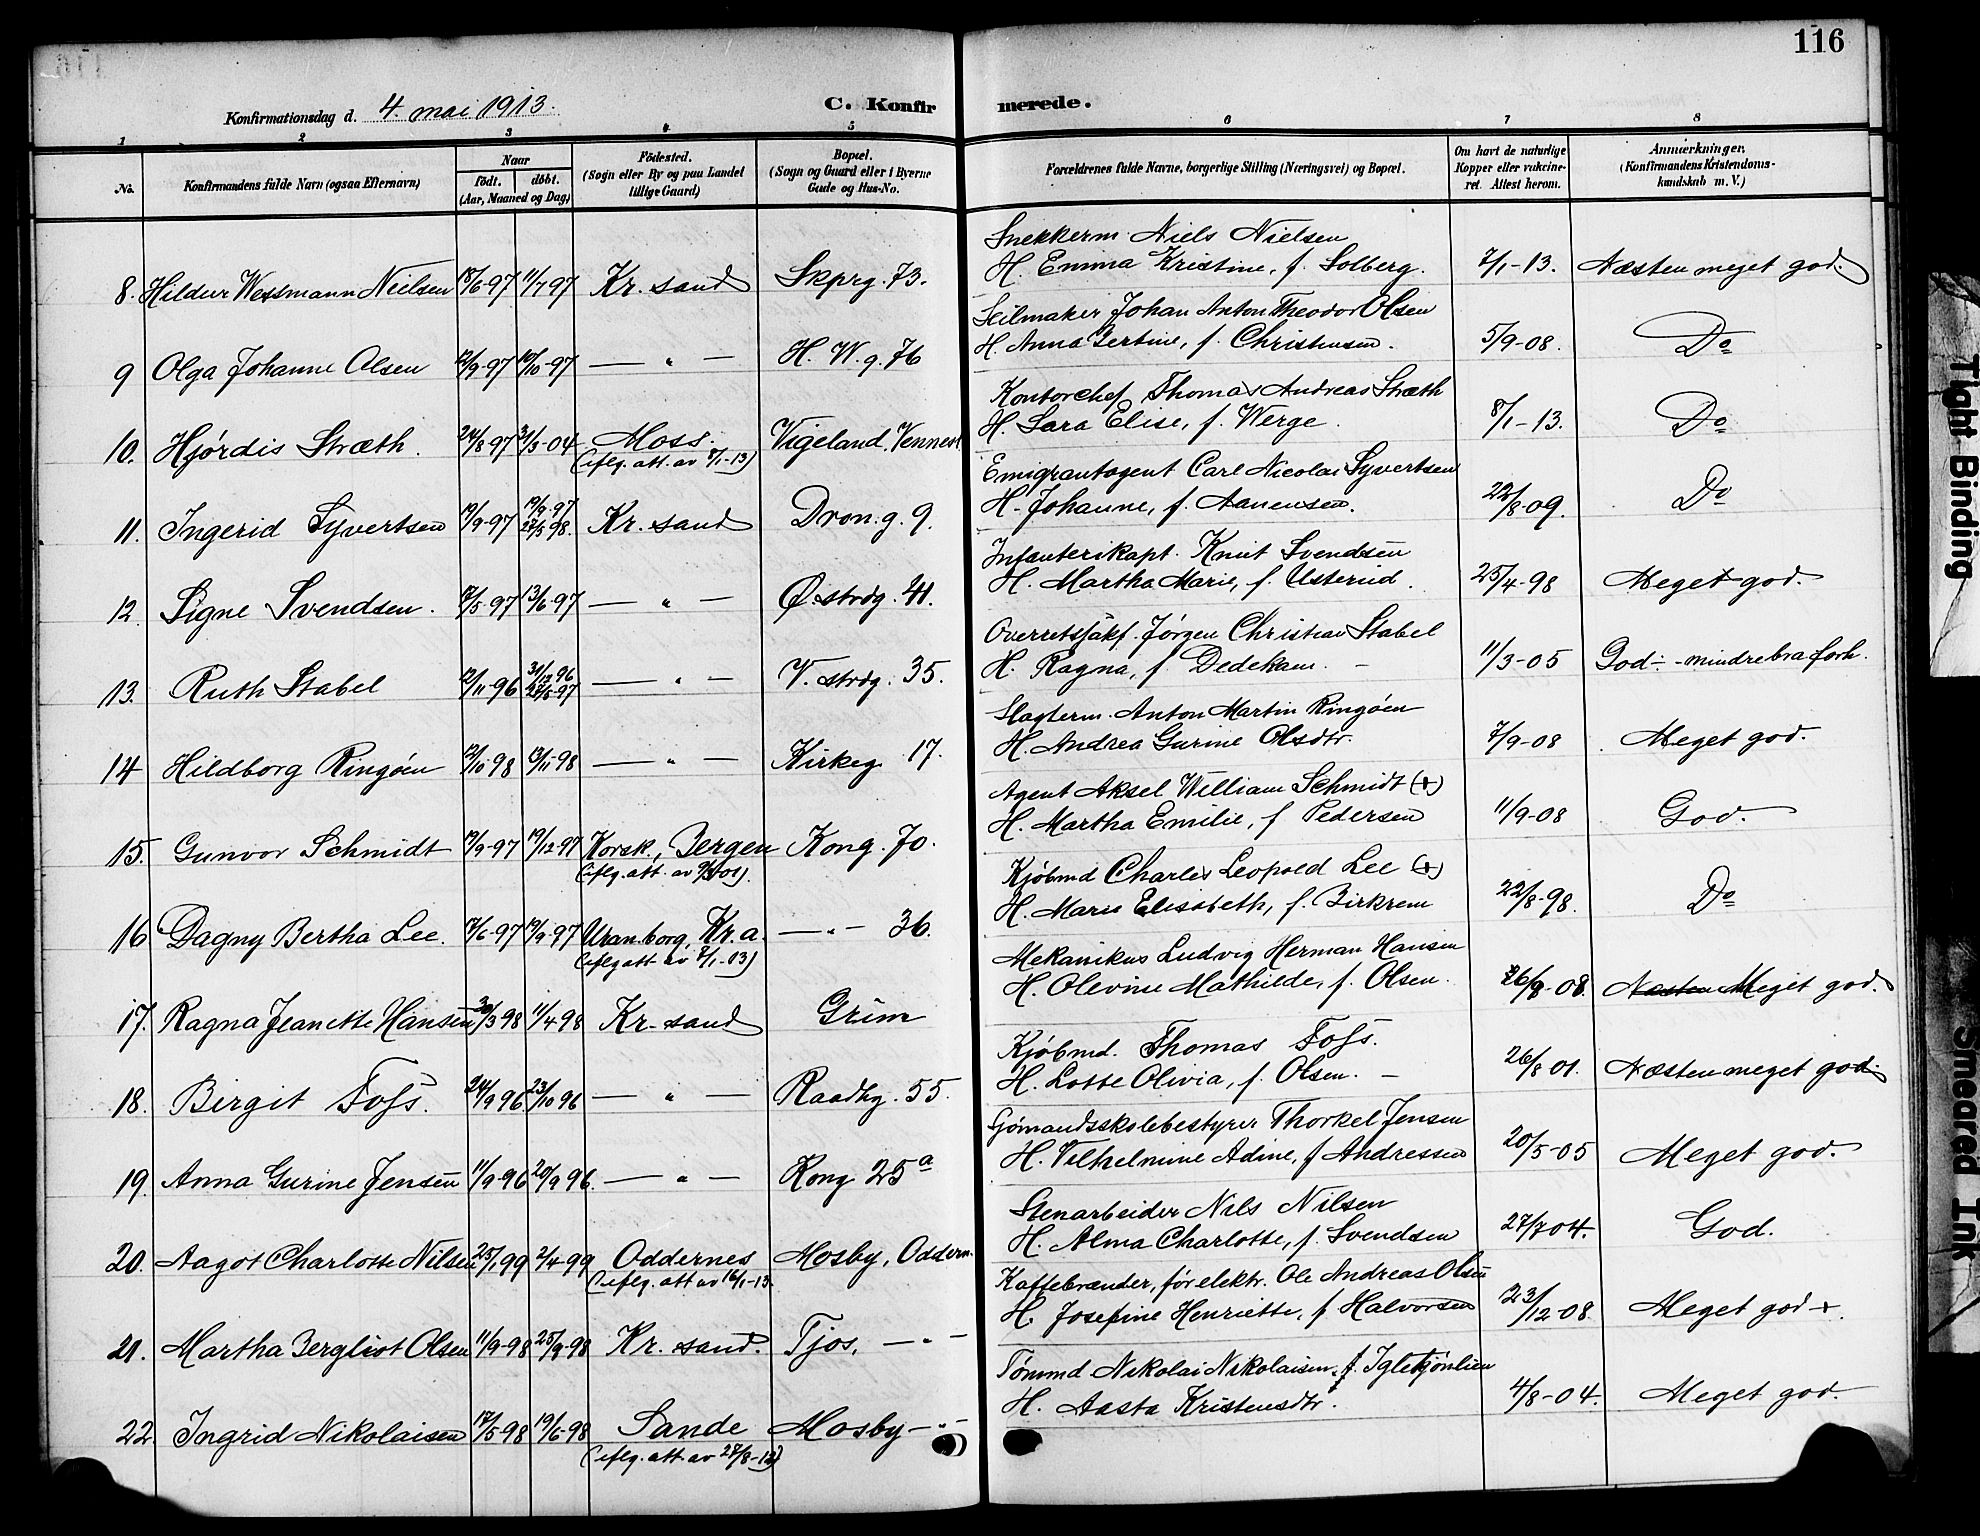 116
Konfirmationsdag d. 4. mai 1913.
C. Konfirmerede.
1 2 3 4 5 6 7 8
No.
Konfirmandens fulde Navn (ogsaa Efternavn)
Naar
født. døbt.
(Aar, Maaned og Dag)
Fødested.
(Sogn eller By og paa Landet
tillige Gaard)
Bopæl.
(Sogn og Gaard eller i Byerne
Gade og Hus-No.
Forældrenes fulde Navne, borgerlige Stilling (Næringsvei) og Bopæl.
Om havt de naturlige
Kopper eller vakcine-
ret. Attest herom.
Anmærkninger.
(Konfirmandens Kristendoms-
kundskab m. V.)
Snekkerm. Niels Nielsen
8. Hildur Wessmann Nielsen 18/6-97 11/7 97 Kr. sand Skprg. 73. H. Emma Kristine, f. Solberg. 7/1-13. Næsten meget god.
Seilmaker Johan Anton Theodor Olsen
9 Olga Johanne Olsen 12/9-97 10/10-97 — " — H. W. g. 76 H. Anna Gertine, f. Christensen. 5/9-08. Do
Kontorchef Thomas Andreas Stræth
10. Hjørdis Stræth. 24/8-97 31/3-04 Moss. Vigeland, Vennesl H. Sara Elise, f. Werge. 8/1-13. Do
(iflg. att. av 8/1-13)
Emigrantagent Carl Nicolai Syvertsen
11. Ingerid Syvertsen 19/9-97 19/9-97 27/3 98. Kr. sand Dron. g. 9. H. Johanne, f. Aanensen. 22/8-09. Do
Infanterikapt. Knut Svendsen
12 Signe Svendsen. 17/5-97 13/6-97 — " — Ø. strdg. 41. H. Martha Marie, f. Usterud. 25/4-98 Meget god.
Overretssakf. Jørgen Christian Stabel
13. Ruth Stabel 12/11-96 31/12 96 — " — V. strdg. 35. H. Ragna, f. Dedekam. — 11/3-05 God ÷ - mindre bra forh.
Slagterm. Anton Martin Ringøen
14 Hildborg Ringøen 12/10 98 13/11-98 — " — Kirkeg 17. H. Andrea Gurine Olsdtr. 7/9-08 Meget god.
Agent Aksel William Schmidt (+)
15. Gunvor Schmidt 19/9-97 19/12-97 Korsk., Bergen Kong. 70. H. Martha Emilie, f Pedersen 11/9-08 God.
Kjøbmd Charles Leopold Lee (+)
16 Dagny Bertha Lee. 17/6-97 19/9-97 Uranborg, Kr. a. — " — 36. H. Marie Elisabeth, f. Birkrem 22/8-98. Do
(iflg att av 7/1-13)
Mekanikus Ludvig Herman Hansen
17. Ragna Jeanette Hansen 30/3 98 11/4 98 Kr. sand Grim H. Olevine Mathilde, f. Olsen. 26/8-08. Næsten Meget god.
Kjøbmd. Thomas Foss.
18. Birgit Foss. 24/9 96 23/10 96 — " — Raadhg. 55. H. Lotte Olivia, f. Olsen. — 26/8 01. Næsten meget god.
Sjømandsskolebestyrer Thorkel Jensen
19. Anna Gurine Jensen 11/9-96 20/9 96. — " — Kong 25a H. Vilhelmine Adine, f Andressen 20/5-05 Meget god.
Stenarbeider Nils Nilsen
20. Aagot Charlotte Nilsen 25/1 99 2/4-99 Oddernes Mosby, Oddern. H. Alma Charlotte, f. Svendsen 27/7 04. God.
(iflg. att av 16/1-13
Kaffebrænder, før elektr. Ole Andreas Olsen
21. Martha Bergliot Olsen 11/9-98 25/9-98 Kr. sand. Tjos, — " — H. Josefine Henriette, f Halvorsen 23/12-08 Meget god +.
Tømmd Nikolai Nikolaisen, f. Igletjønlien
22 Ingrid Nikolaisen 17/5-98 19/6-98 Sande Mosby — " — H. Aasta Kristensdtr. 4/8-04. Meget god.
(iflg. att. av 27/8-12)
Tight Binding
Smeared Ink